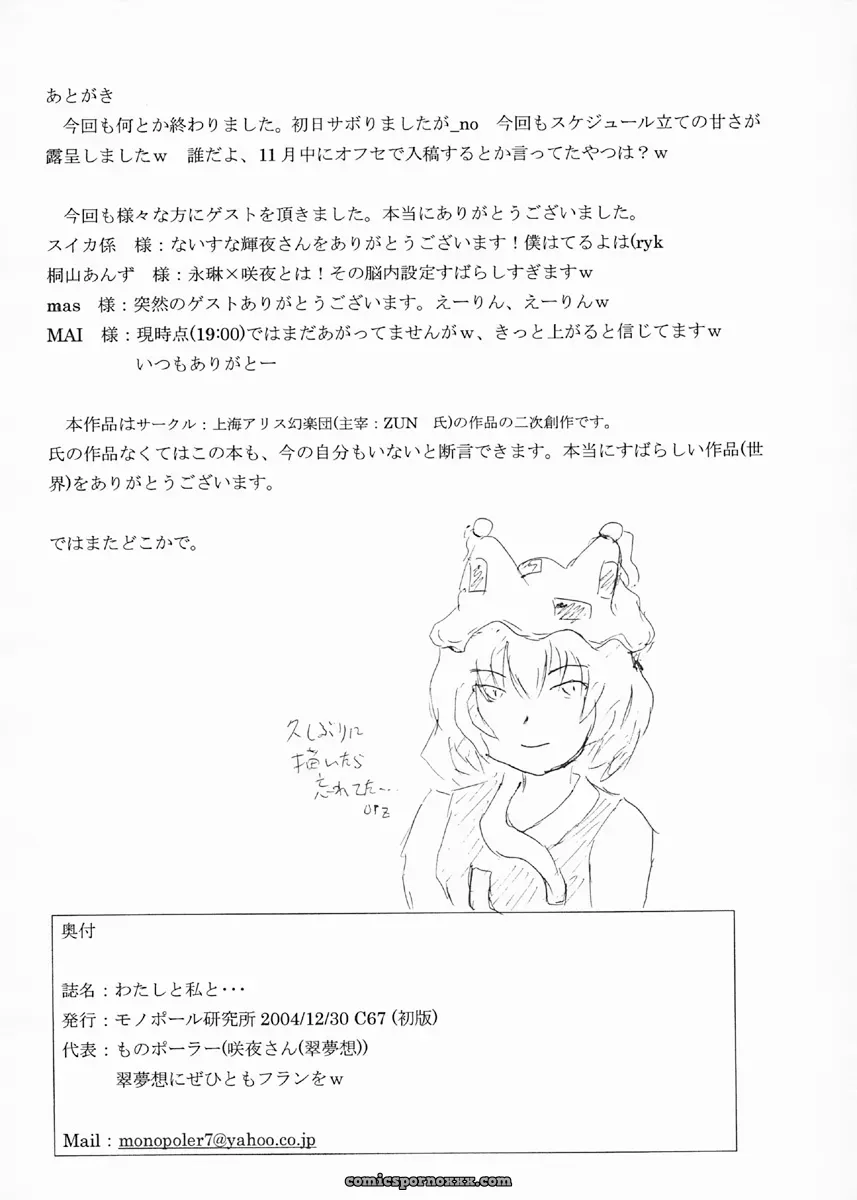 あとがき
今回も何とか終わりました。初日サボりましたが_no　今回もスケジュール立ての甘さが
露呈しましたｗ　誰だよ、11月中にオフセで入稿するとか言ってたやつは？ｗ
今回も様々な方にゲストを頂きました。本当にありがとうございました。
スイカ係　様：ないすな輝夜さんをありがとうございます！僕はてるよは(ryk
桐山あんず　様：永琳×咲夜とは！その脳内設定すばらしすぎますｗ
mas　様：突然のゲストありがとうございます。えーりん、えーりんｗ
MAI　様：現時点(19:00)ではまだあがってませんがｗ、きっと上がると信じてますｗ
いつもありがとー
本作品はサークル：上海アリス幻楽団(主宰：ZUN　氏)の作品の二次創作です。
氏の作品なくてはこの本も、今の自分もいないと断言できます。本当にすばらしい作品(世
界)をありがとうございます。
ではまたどこかで。
久しぶりに
描いたら
忘れてた…
orz
奥付
誌名：わたしと私と･･･
発行：モノポール研究所 2004/12/30 C67 (初版)
代表：ものポーラー(咲夜さん(翠夢想))
翠夢想にぜひともフランをｗ
Mail：monopoler7@yahoo.co.jp
comicspornoxxx.com